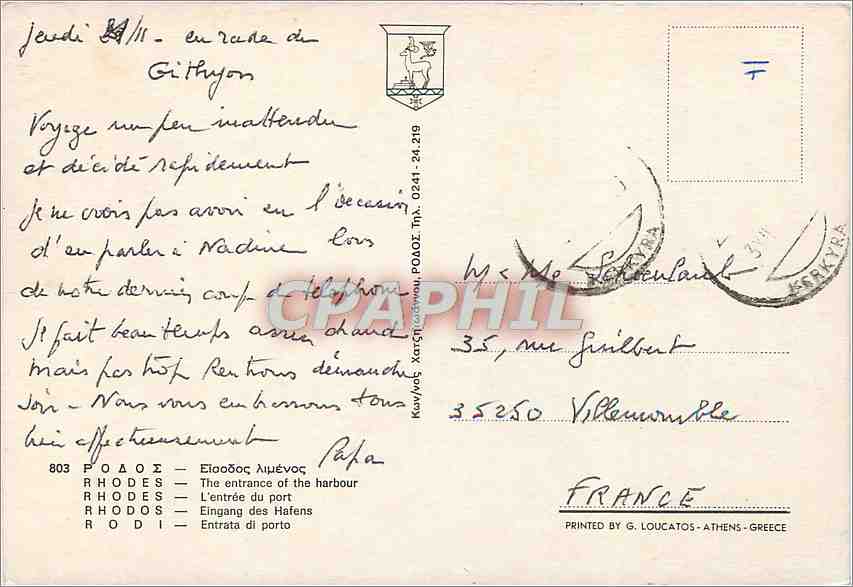 Jeudi /11 - en rade de
Githyon
Voyage un peu inattendu
et décidé rapidement
Je ne crois pas avoir eu l'occasion
d'en parler à Nadine lors
de notre dernier coup de téléphone
Il fait beau temps assez chaud
mais pas trop Rentrons dimanche
soir - Nous vous embrassons tous
bien affectueusement
Papa
803 ΡΟΔΟΣ — Είσοδος λιμένος
RHODES — The entrance of the harbour
RHODES — L'entrée du port
RHODOS — Eingang des Hafens
RODI — Entrata di porto
Κων/νος Χατζηϊωάννου, ΡΟΔΟΣ. Τηλ. 0241 - 24.219
T
KERKYRA
KERKYRA
M & Me
35, rue Guilbert
35250 Villemomble
FRANCE
PRINTED BY G. LOUCATOS - ATHENS - GREECE
CPAPHIL